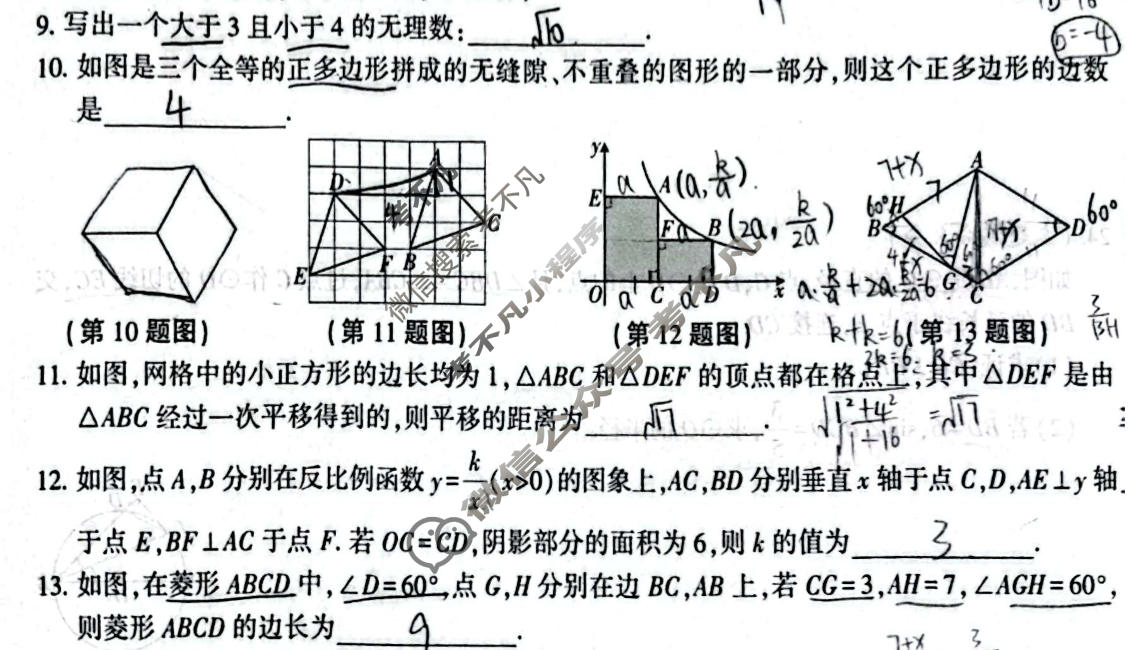 9. 写出一个大于3且小于4的无理数: √10 .
b=-4
10. 如图是三个全等的正多边形拼成的无缝隙、不重叠的图形的一部分,则这个正多边形的边数
是 4 .
D A C E F B
y E a A(a, k/a) F a B(2a, k/2a) O a C a D x
a·k/a+2a·k/2a=6
k+k=6
2k=6 k=3
7+x A 7 60°H B D 60° 7+x 4+x 60° G 3 C 60°
3
BH
(第10题图) (第11题图) (第12题图) (第13题图)
11. 如图,网格中的小正方形的边长均为1,△ABC和△DEF的顶点都在格点上,其中△DEF是由
△ABC经过一次平移得到的,则平移的距离为 √17 . √1²+4² =√17
√1+16
12. 如图,点A,B分别在反比例函数y=k/x(x>0)的图象上,AC,BD分别垂直x轴于点C,D,AE⊥y轴
于点E,BF⊥AC于点F.若OC=CD,阴影部分的面积为6,则k的值为 3 .
13. 如图,在菱形ABCD中,∠D=60°,点G,H分别在边BC,AB上,若CG=3,AH=7,∠AGH=60°,
则菱形ABCD的边长为 9 .
7+x 3
微信搜索 考不凡
考不凡小程序
微信公众号 考不凡